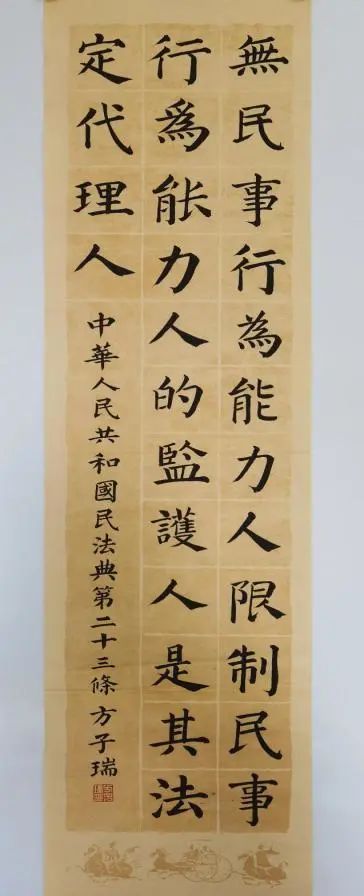 無民事行為能力人限制民事
行爲能力人的監護人是其法
定代理人
中華人民共和國民法典第二十三條方子瑞